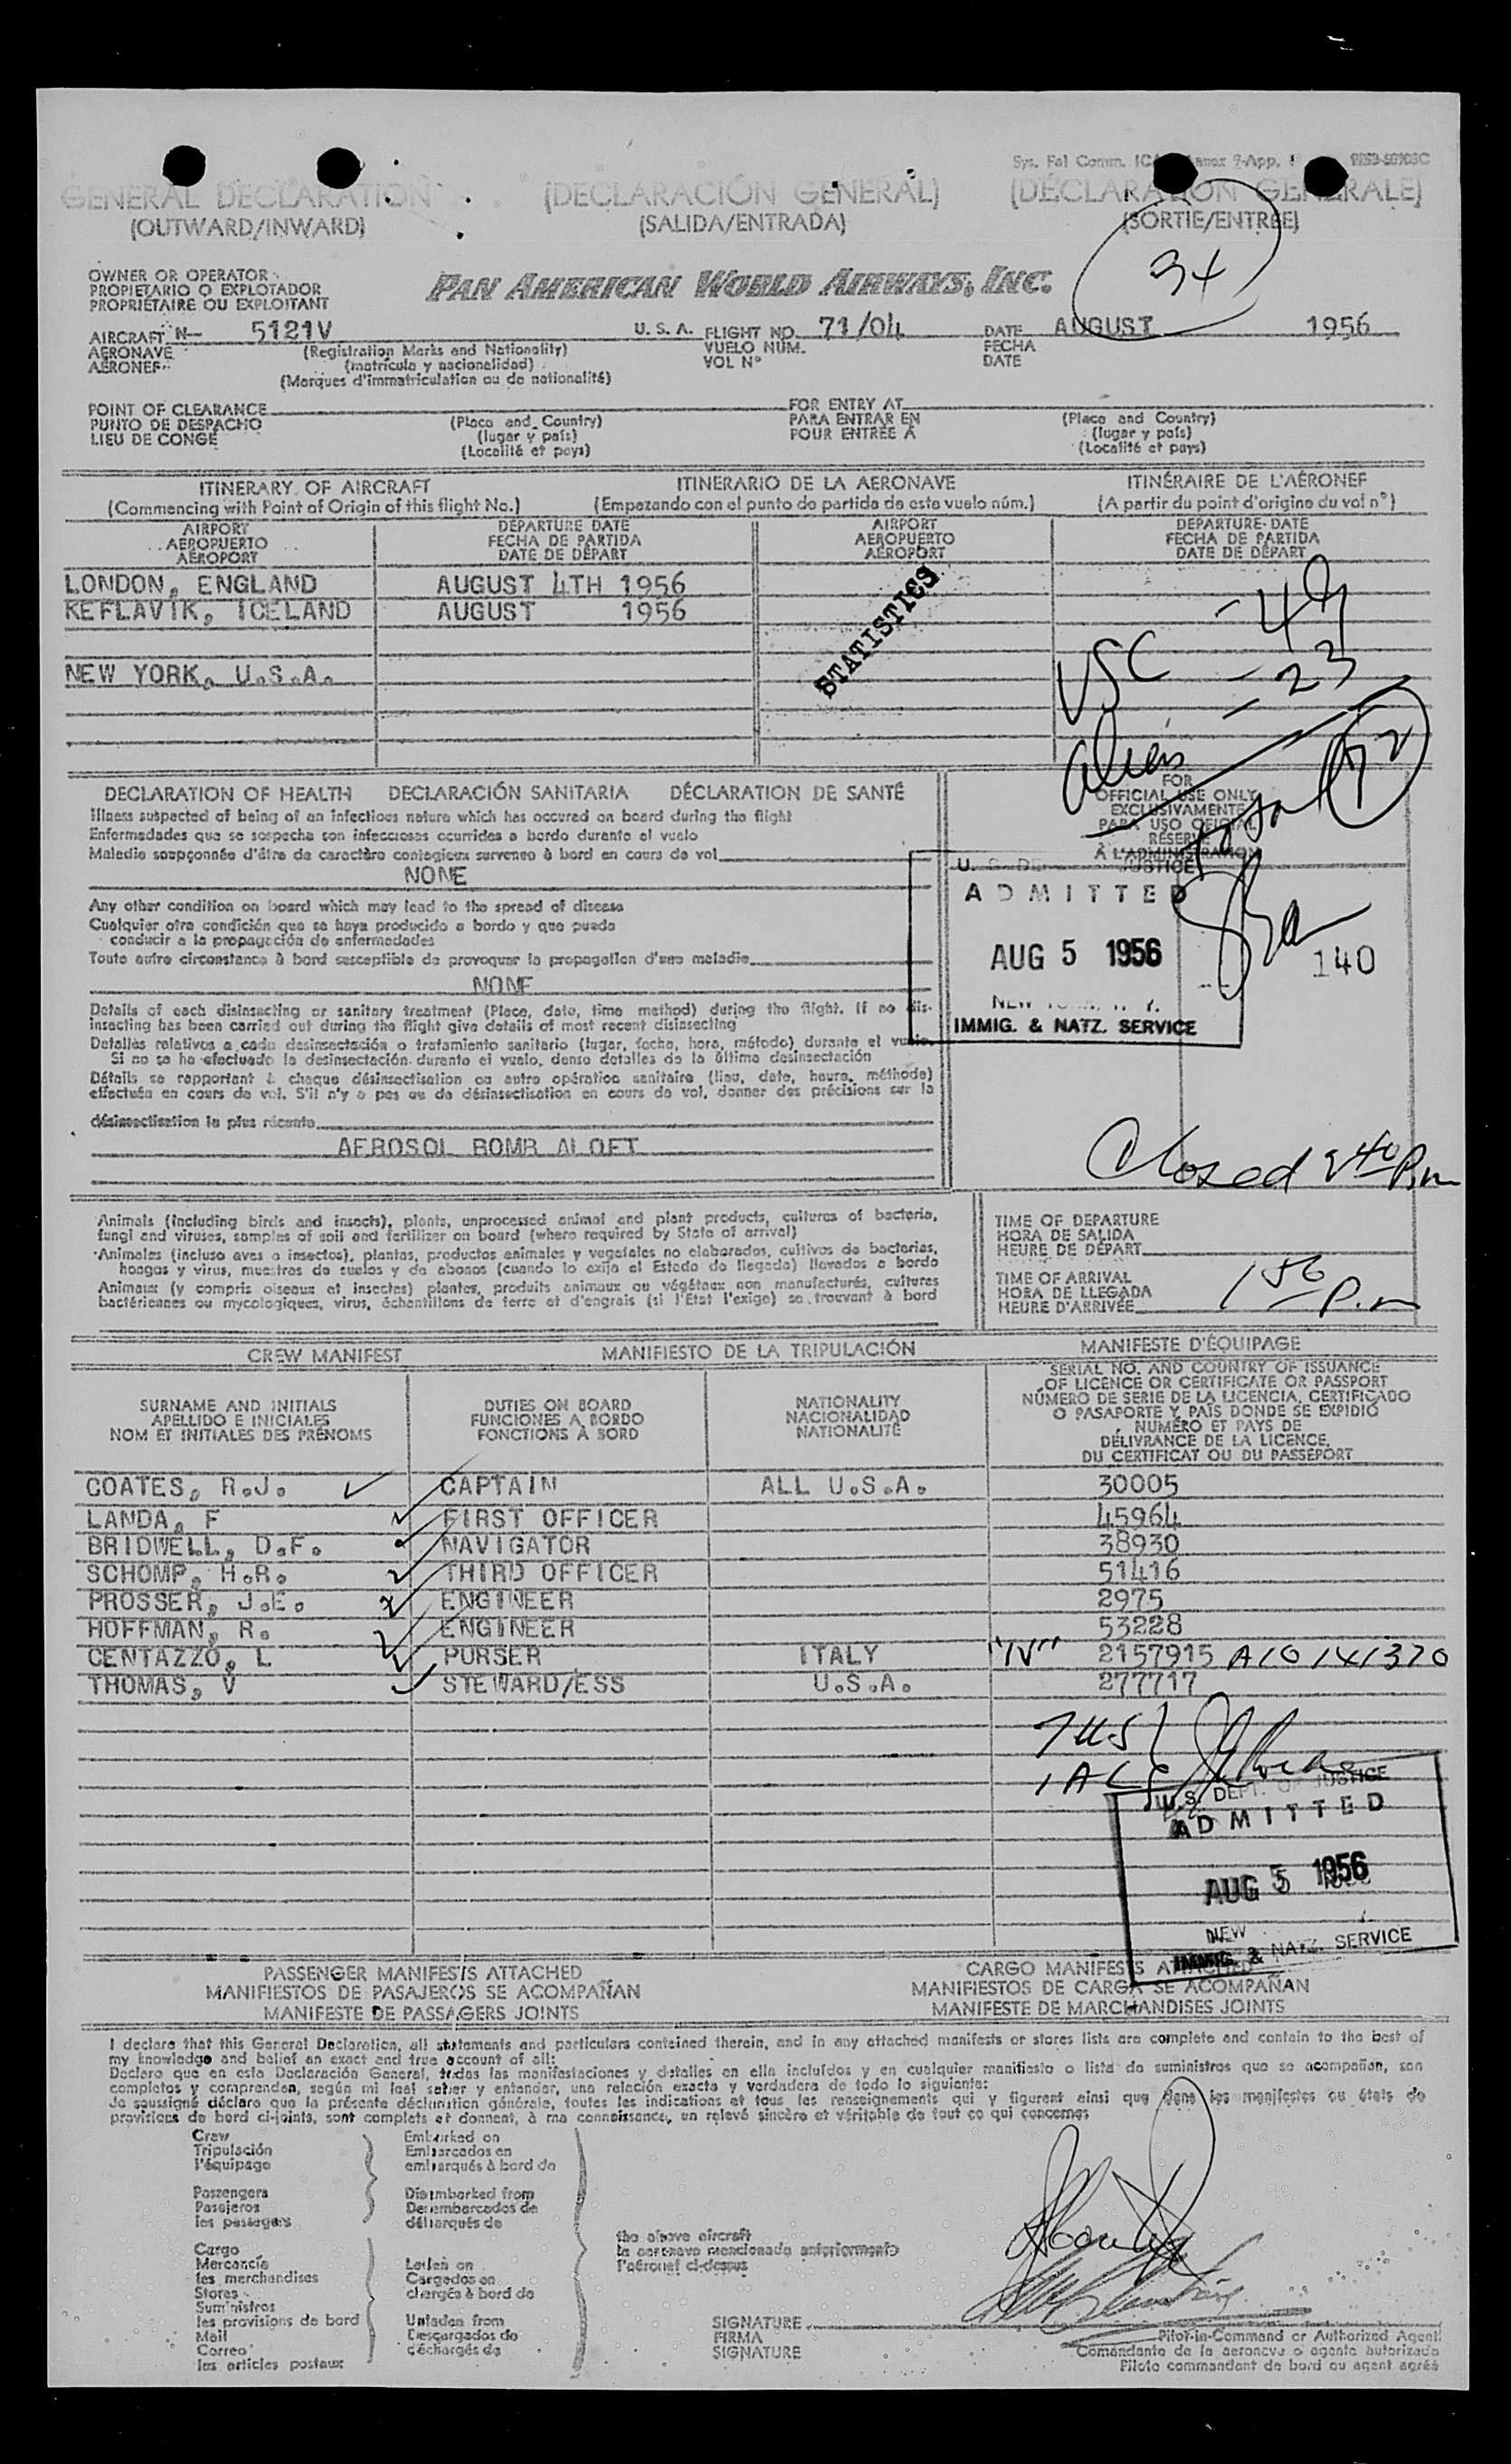 Sys. Fal Comm. ICA
GENERAL DECLARATION (DECLARACIÓN GENERAL) (DÉCLARATION GÉNÉRALE)
(OUTWARD/INWARD) (SALIDA/ENTRADA) (SORTIE/ENTRÉE)
34
OWNER OR OPERATOR
PROPIETARIO O EXPLOTADOR
PROPRIÉTAIRE OU EXPLOITANT
PAN AMERICAN WORLD AIRWAYS, INC.
AIRCRAFT N- 5121V U. S. A. FLIGHT NO. 71/04 DATE AUGUST 1956
AERONAVE (Registration Marks and Nationality) VUELO NÚM. FECHA
AÉRONEF (matrícula y nacionalidad) VOL Nº DATE
(Marques d'immatriculation ou de nationalité)
POINT OF CLEARANCE FOR ENTRY AT
PUNTO DE DESPACHO (Place and Country) PARA ENTRAR EN (Place and Country)
LIEU DE CONGÉ (lugar y país) POUR ENTRÉE À (lugar y país)
(Localité et pays) (Localité et pays)
ITINERARY OF AIRCRAFT ITINERARIO DE LA AERONAVE ITINÉRAIRE DE L'AÉRONEF
(Commencing with Point of Origin of this flight No.) (Empezando con el punto de partida de este vuelo núm.) (A partir du point d'origine du vol nº)
AIRPORT DEPARTURE DATE AIRPORT DEPARTURE DATE
AEROPUERTO FECHA DE PARTIDA AEROPUERTO FECHA DE PARTIDA
AÉROPORT DATE DE DÉPART AÉROPORT DATE DE DÉPART
LONDON, ENGLAND AUGUST 4TH 1956
KEFLAVIK, ICELAND AUGUST 1956
NEW YORK, U.S.A.
STATISTICS
USC - 49
Aliens - 23
Total 72
DECLARATION OF HEALTH DECLARACIÓN SANITARIA DÉCLARATION DE SANTÉ
Illness suspected of being of an infectious nature which has occured on board during the flight
Enfermedades que se sospecha son infecciosas ocurridas a bordo durante el vuelo
Maladie soupçonnée d'être de caractère contagieux survenue à bord en cours de vol
NONE
Any other condition on board which may lead to the spread of disease
Cualquier otra condición que se haya producido a bordo y que pueda
conducir a la propagación de enfermedades
Toute autre circonstance à bord susceptible de provoquer la propagation d'une maladie
NONE
Details of each disinsecting or sanitary treatment (Place, date, time method) during the flight. If no dis-
insecting has been carried out during the flight give details of most recent disinsecting
Detalles relativos a cada desinsectación o tratamiento sanitario (lugar, fecha, hora, método) durante el vuelo.
Si no se ha efectuado la desinsectación durante el vuelo, dense detalles de la última desinsectación
Détails se rapportant à chaque désinsectisation ou autre opération sanitaire (lieu, date, heure, méthode)
effectuée en cours de vol. S'il n'y a pas eu de désinsectisation en cours de vol, donner des précisions sur la
désinsectisation la plus récente
AEROSOL BOMB ALOFT
FOR
OFFICIAL USE ONLY
EXCLUSIVAMENTE
PARA USO OFICIAL
RÉSERVÉ
À L'ADMINISTRATION
U. S. DE JUSTICE
ADMITTED
AUG 5 1956
140
NEW
IMMIG. & NATZ. SERVICE
Closed 2 40 P.m
Animals (including birds and insects), plants, unprocessed animal and plant products, cultures of bacteria,
fungi and viruses, samples of soil and fertilizer on board (where required by State of arrival)
Animales (incluso aves o insectos), plantas, productos animales y vegetales no elaborados, cultivos de bacterias,
hongos y virus, muestras de suelos y de abonos (cuando lo exija el Estado de llegada) llevados a bordo
Animaux (y compris oiseaux et insectes) plantes, produits animaux ou végétaux non manufacturés, cultures
bactériennes ou mycologiques, virus, échantillons de terre et d'engrais (si l'État l'exige) se trouvant à bord
TIME OF DEPARTURE
HORA DE SALIDA
HEURE DE DÉPART
TIME OF ARRIVAL
HORA DE LLEGADA
HEURE D'ARRIVÉE 1 56 P.m
CREW MANIFEST MANIFIESTO DE LA TRIPULACIÓN MANIFESTE D'ÉQUIPAGE
SURNAME AND INITIALS
APELLIDO E INICIALES
NOM ET INITIALES DES PRÉNOMS
DUTIES ON BOARD
FUNCIONES A BORDO
FONCTIONS À BORD
NATIONALITY
NACIONALIDAD
NATIONALITÉ
SERIAL NO. AND COUNTRY OF ISSUANCE
OF LICENCE OR CERTIFICATE OR PASSPORT
NÚMERO DE SERIE DE LA LICENCIA, CERTIFICADO
O PASAPORTE Y PAÍS DONDE SE EXPIDIÓ
NUMÉRO ET PAYS DE
DÉLIVRANCE DE LA LICENCE,
DU CERTIFICAT OU DU PASSEPORT
COATES, R.J. CAPTAIN ALL U.S.A. 30005
LANDA, F FIRST OFFICER 45964
BRIDWELL, D.F. NAVIGATOR 38930
SCHOMP, H.R. THIRD OFFICER 51416
PROSSER, J.E. ENGINEER 2975
HOFFMAN, R. ENGINEER 53228
CENTAZZO, L PURSER ITALY "IV" 2157915 A10 141370
THOMAS, V STEWARD/ESS U.S.A. 277717
7 US
1 AL
U.S. DEPT. OF JUSTICE
ADMITTED
AUG 5 1956
NEW
IMMIG. & NATZ. SERVICE
PASSENGER MANIFESTS ATTACHED CARGO MANIFESTS ATTACHED
MANIFIESTOS DE PASAJEROS SE ACOMPAÑAN MANIFIESTOS DE CARGA SE ACOMPAÑAN
MANIFESTE DE PASSAGERS JOINTS MANIFESTE DE MARCHANDISES JOINTS
I declare that this General Declaration, all statements and particulars contained therein, and in any attached manifests or stores lists are complete and contain to the best of
my knowledge and belief an exact and true account of all:
Declaro que en esta Declaración General, todas las manifestaciones y detalles en ella incluídos y en cualquier manifiesto o lista de suministros que se acompañan, son
completos y comprenden, según mi leal saber y entender, una relación exacta y verdadera de todo lo siguiente:
Je soussigné déclare que la présente déclaration générale, toutes les indications et tous les renseignements qui y figurent ainsi que dans les manifestes ou états de
provisions de bord ci-joints, sont complets et donnent, à ma connaissance, un relevé sincère et véritable de tout ce qui concerne:
Crew Embarked on
Tripulación Embarcados en
l'équipage embarqués à bord de
Passengers Disembarked from
Pasajeros Desembarcados de
les passagers débarqués de
the above aircraft
la aeronave mencionada anteriormente
l'aéronef ci-dessus
Cargo
Mercancía Laden on
les marchandises Cargados en
Stores chargés à bord de
Suministros
les provisions de bord Unladen from
Mail Descargados de
Correo déchargés de
les articles postaux
SIGNATURE
FIRMA
SIGNATURE
Pilot-in-Command or Authorized Agent
Comandante de la aeronave o agente autorizado
Pilote commandant de bord ou agent agréé